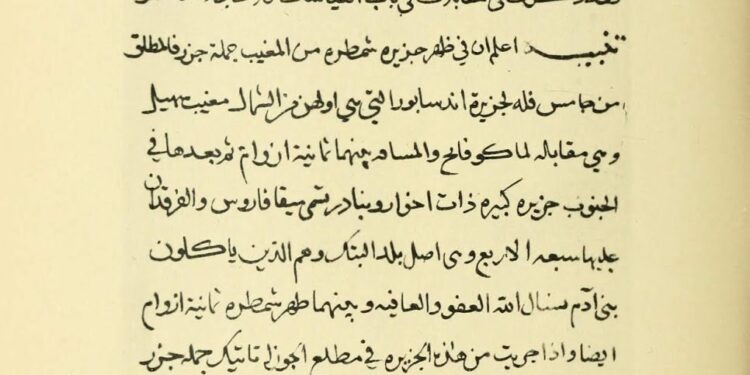 تنبيه اعلم ان في ظهر جزيره شمطره من المغيب جملة جزر فالمطلق
من جامس فله لجزيرة اندسابور التي هي اولهن من الشمال مغيب سهيل
وهي مقابله لماكوفانج والمسافه بينهما ثمانية ازوام ثم بعدها في
الجنوب جزيره كبيره ذات اخوار وبنادر تسمى ميقا فاروس والفرقدان
عليها سبعه الا ربع وهى اصل بلد البتك وهم الذين ياكلون
بنى آدم نسال الله العفو والعافيه وبينهما ظهر شمطره ثمانية ازوام
ايضا واذا جريت من هذه الجزيره في مطلع الجوزا تاتيك جمله جزر